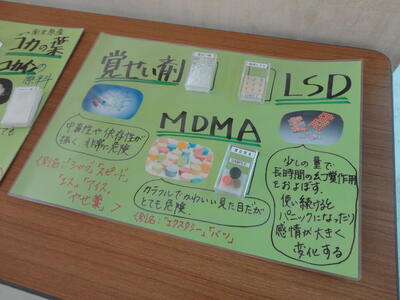 南米原産
コカの葉
コカインの
原料
とても
覚せい剤
LSD
MDMA
中毒性や依存性が
強く 非常に危険
<別名:「シャブ」「スピード」
「エス」「アイス」
「やせ薬」>
カラフルでかわいい見た目だが
とても危険。
<別名:「エクスタシー」「バツ」
少しの量で
長時間の幻覚作用
をおよぼす。
使い続けると
パニックになったり
感情が大きく
変化する